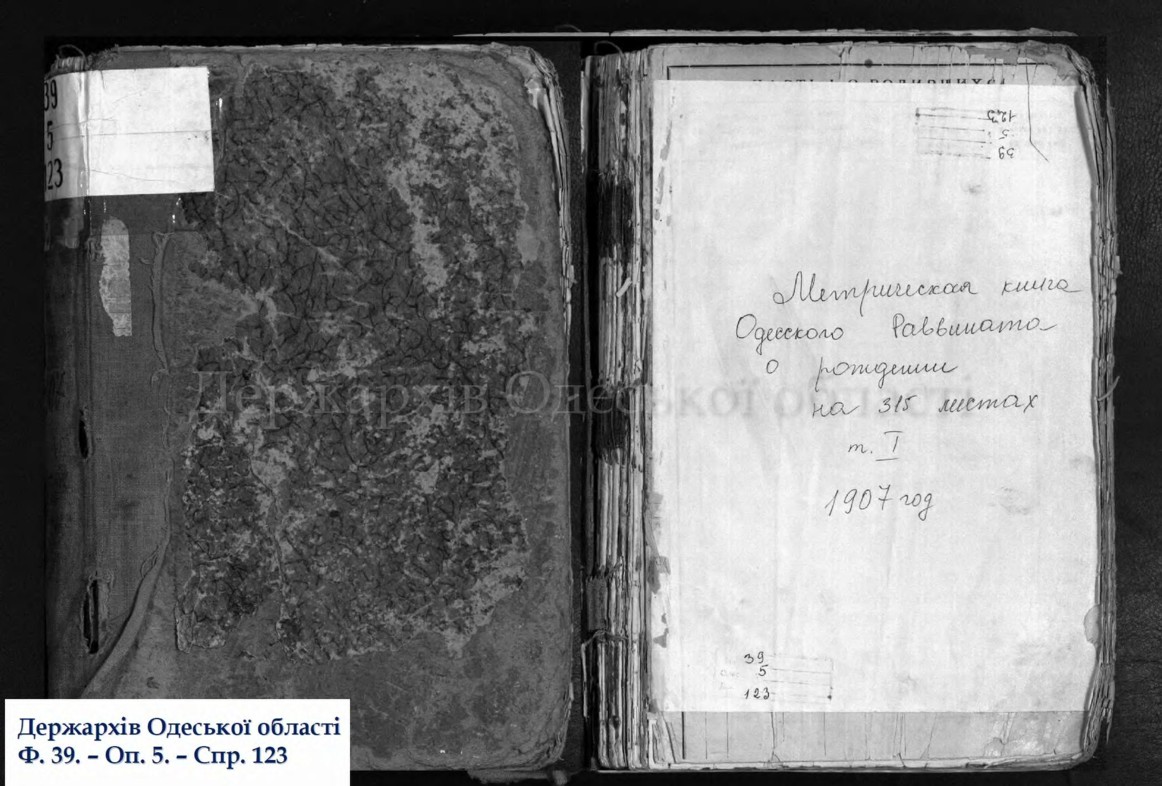 39
5
123
ЧАСТЬ I. О РОДИВШИХСЯ
123
5
39
Метрическая книга
Одесского Раввината
о рождении
на 315 листах
т. I
1907 год
Держархів Одеської області
39
5
123
Держархів Одеської області
Ф. 39. – Оп. 5. – Спр. 123